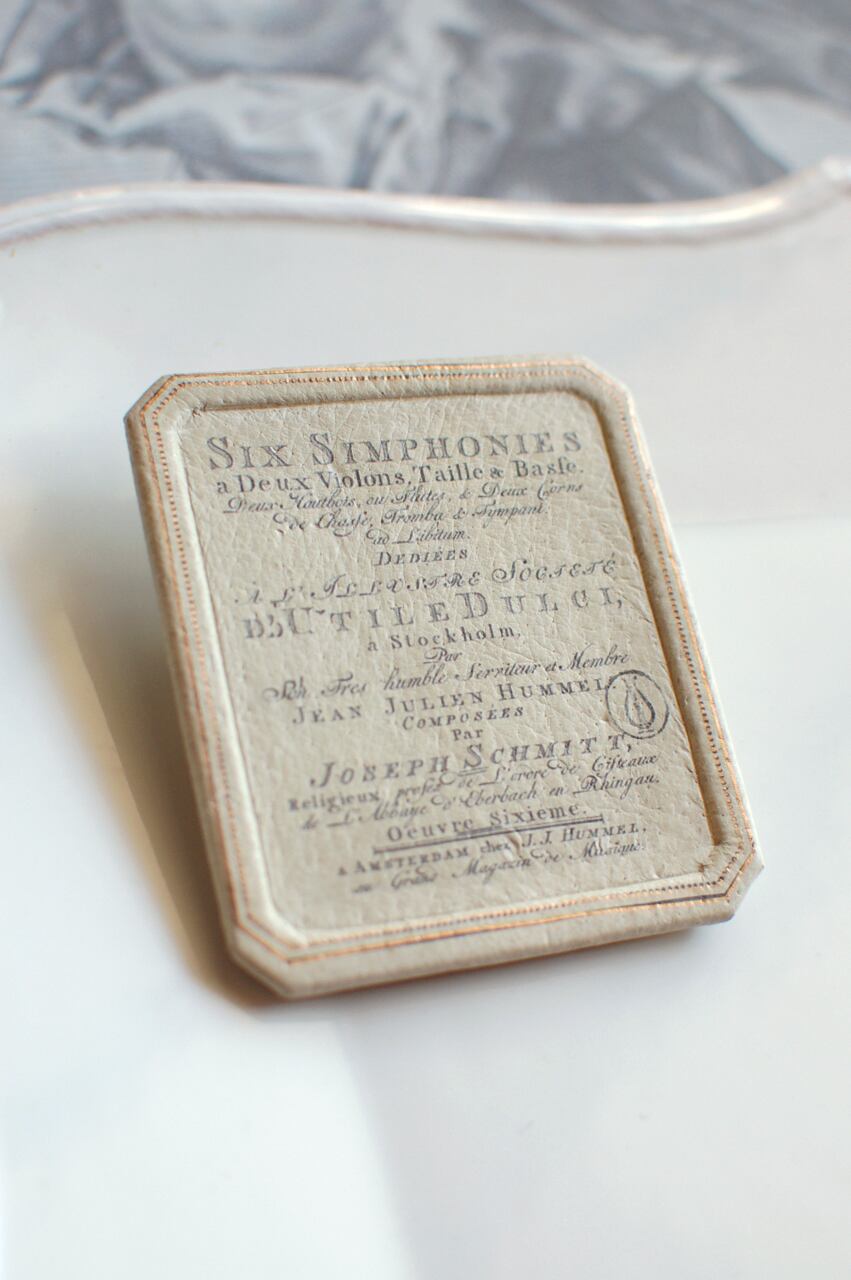 SIX SIMPHONIES
a Deux Violons, Taille & Basse.
Deux Hautbois, ou Flutes, & Deux Corns
de Chasse, Tromba & Tympani.
ad Libitum.
DEDIÉES
À L'ILLUSTRE SOCIETÉ
UTILE DULCI,
a Stockholm,
Par
Son Tres humble Serviteur et Membre
JEAN JULIEN HUMMEL
COMPOSÉES
Par
JOSEPH SCHMITT,
Religieux profes de L'ordre de Citeaux
de L'Abbaÿe d'Eberbach en Rhingau.
Oeuvre Sixieme.
a AMSTERDAM chez J. J. HUMMEL,
au Grand Magazin de Musique.